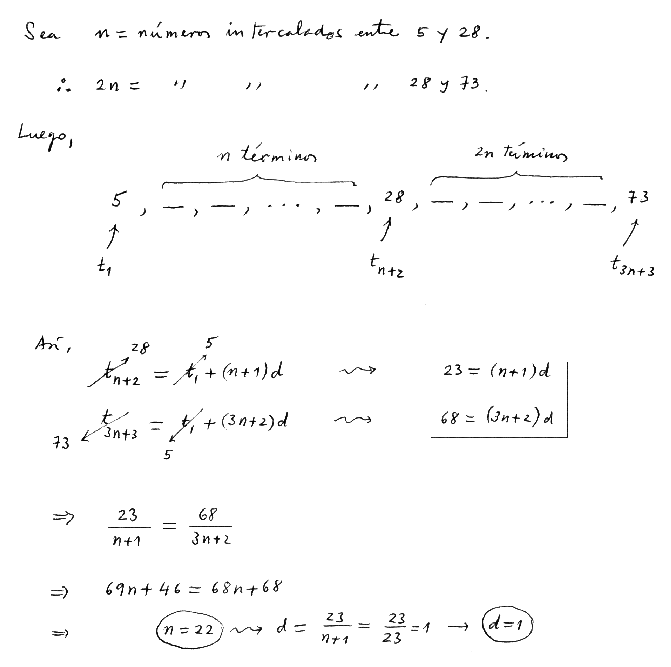 Sea n = números intercalados entre 5 y 28.
∴ 2n = " " " 28 y 73.
Luego,
n términos 2n términos
5, —, —, ..., —, 28, —, —, ..., —, 73
↑ ↑ ↑
t₁ tₙ₊₂ t₃ₙ₊₃
Así,
28 5
tₙ₊₂ = t₁ + (n+1)d ⇝ 23 = (n+1)d
73 t₃ₙ₊₃ = t₁ + (3n+2)d ⇝ 68 = (3n+2)d
5
⇒ 23/(n+1) = 68/(3n+2)
⇒ 69n + 46 = 68n + 68
⇒ n = 22 ⇝ d = 23/(n+1) = 23/23 = 1 → d = 1